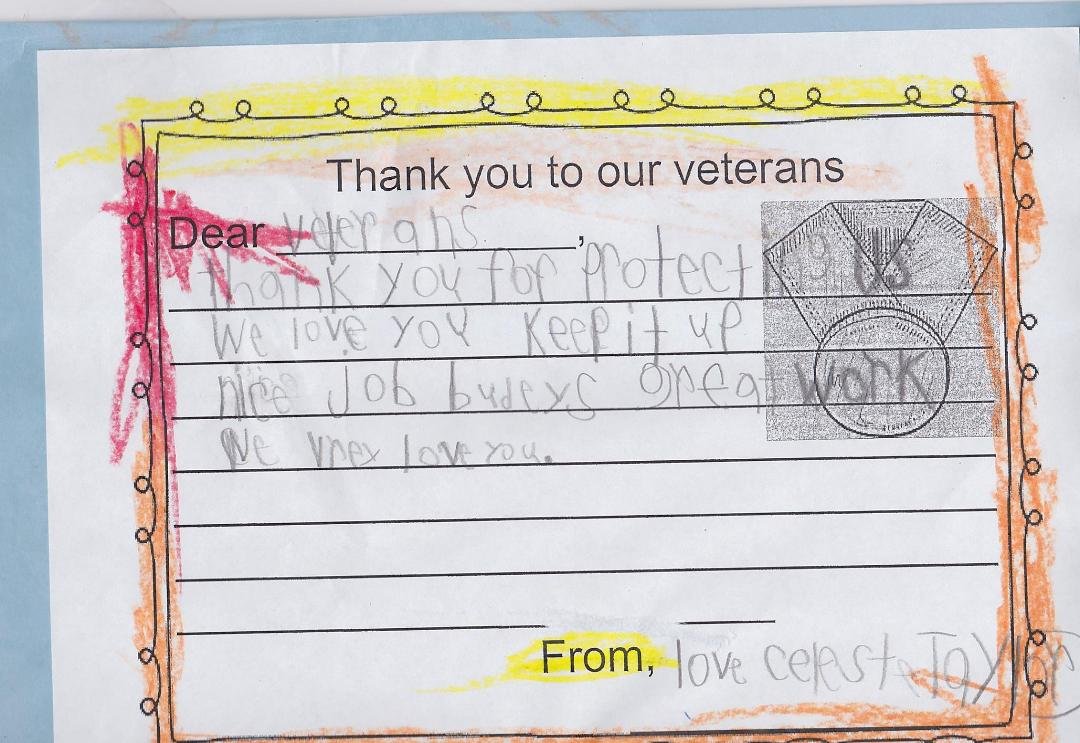 Thank you to our veterans
Dear veterans,
thank you for protecting us
We love you keep it up
nice job budeys great work
We love you.
From, love celeste Taylor